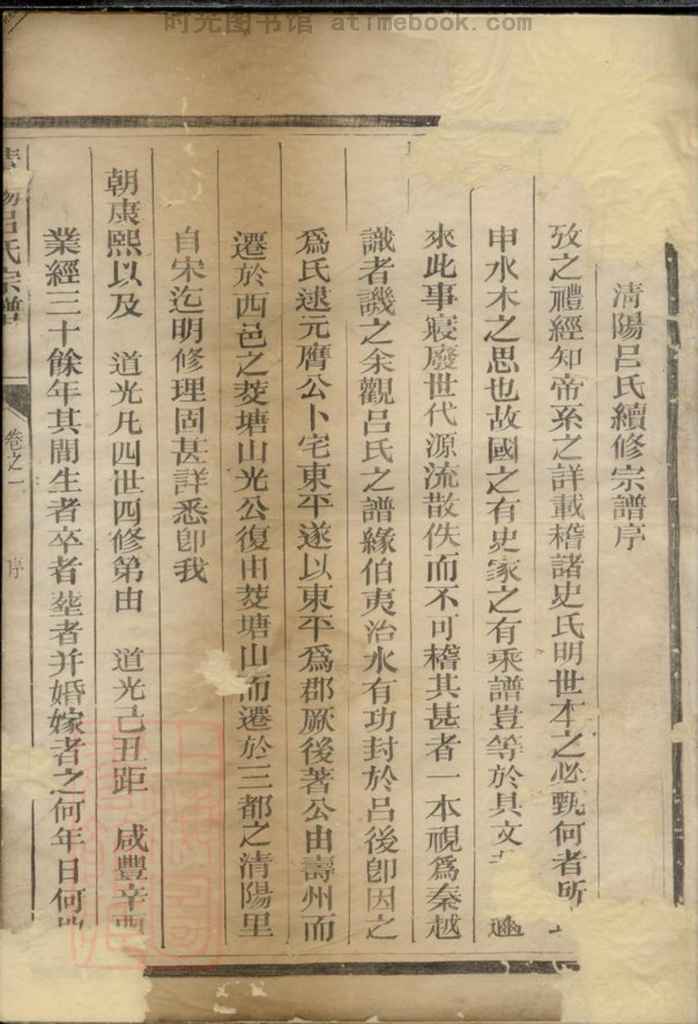 时光图书馆 - atimebook.com
清陽呂氏續修宗譜序
攷之禮經知帝系之詳載稽諸史氏明世本之必甄何者所
申水木之思也故國之有史家之有乘譜豈等於具文
來此事寢廢世代源流散佚而不可稽其甚者一本視為秦越
識者譏之余觀呂氏之譜緣伯夷治水有功封於呂後卽因之
爲氏逮元膺公卜宅東平遂以東平爲郡厥後著公由壽州而
遷於西邑之菱塘山光公復由菱塘山而遷於三都之清陽里
自宋迄明修理固甚詳悉卽我
朝康熙以及 道光凡四世四修第由 道光己丑距 咸豐辛酉
業經三十餘年其間生者卒者塟者并婚嫁者之何年日何
呂氏宗譜 卷之一 序